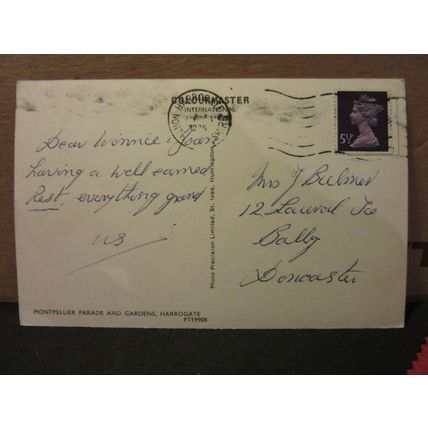 COLOURMASTER
INTERNATIONAL
1975
5½P
Dear Winnie & Jean
having a well earned
Rest, everything grand
us
Photo Precision Limited, St. Ives, Huntingdon
Mrs J Bulmer
12 Laurel Tce
Balby
Doncaster
MONTPELLIER PARADE AND GARDENS, HARROGATE
PT19908